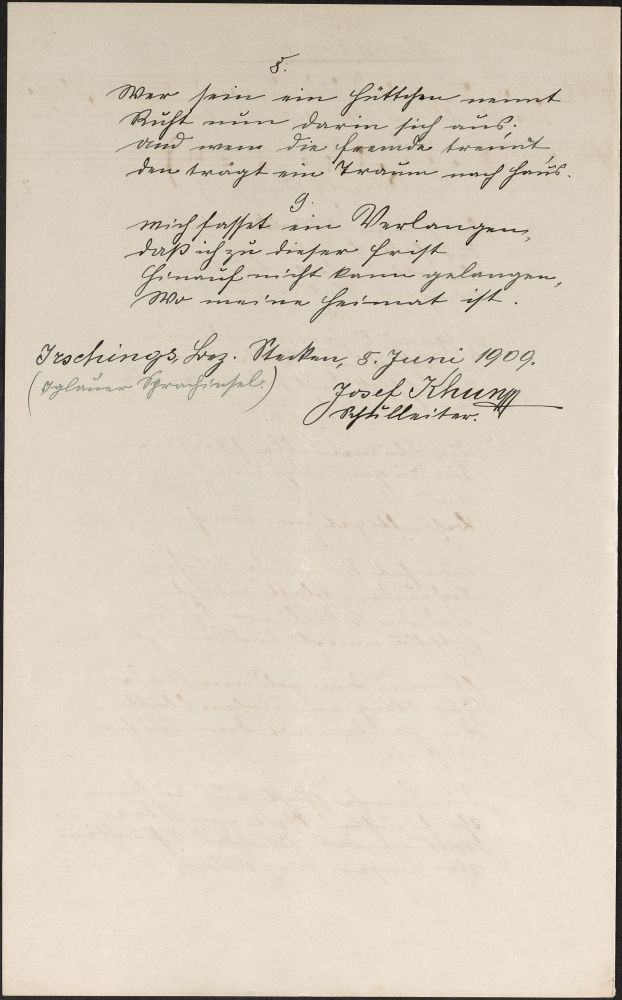 8.
Wer sein ein Hüttchen nennt
Ruht nun darin sich aus;
und wem die Fremde trennt
den trägt ein Traum nach Haus.
9.
Mich fasset ein Verlangen,
daß ich zu dieser Frist
Hinauf nicht kann gelangen,
Wo meine Heimat ist.
Irschings, Bez. Stecken, 5. Juni 1909.
(Iglauer Sprachinsel.)
Josef Khun
Schulleiter.